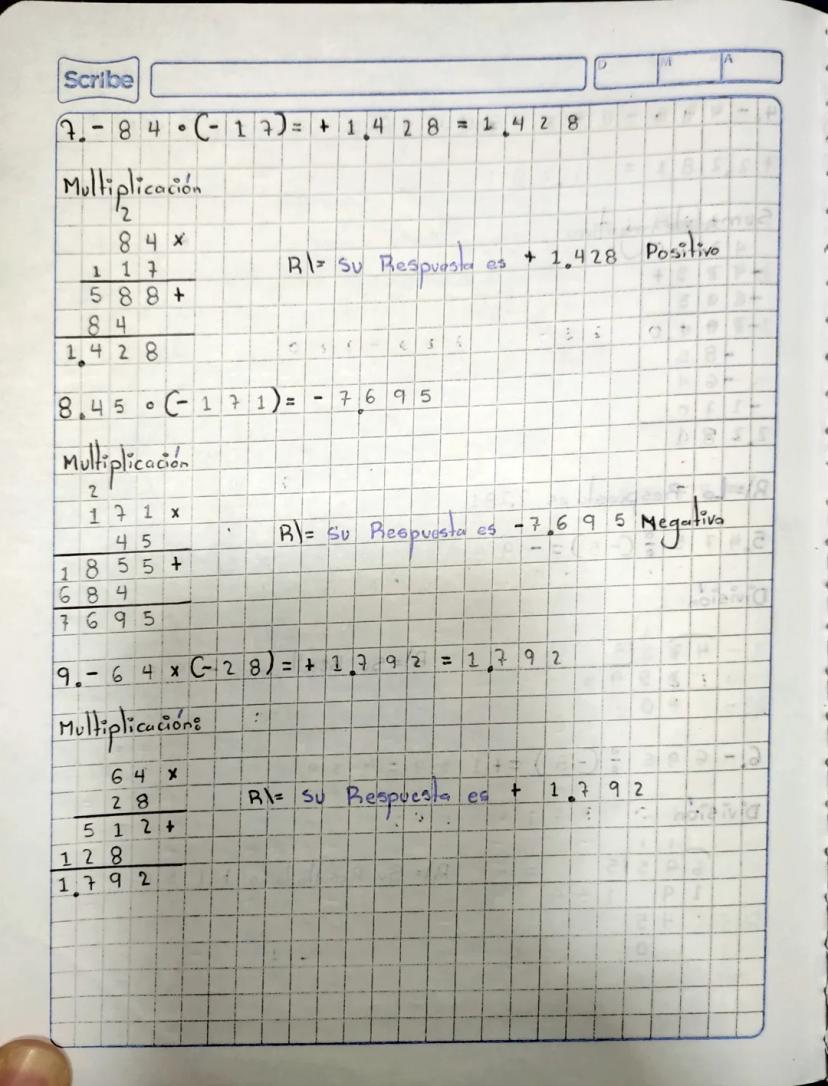 Scribe
D M A
7.- 84 • (-17) = + 1.428 = 1.428
Multiplicación
2
84 x
117
R\= Su Respuesta es + 1.428 Positivo
588+
84
1.428
8.45 • (-171) = - 7.695
Multiplicación
2
171 x
45
R\= Su Respuesta es -7.695 Negativo
1855+
684
7695
9.- 64 x (-28) = + 1.792 = 1.792
Multiplicación:
64 x
28
R\= Su Respuesta es + 1.792
512+
128
1.792